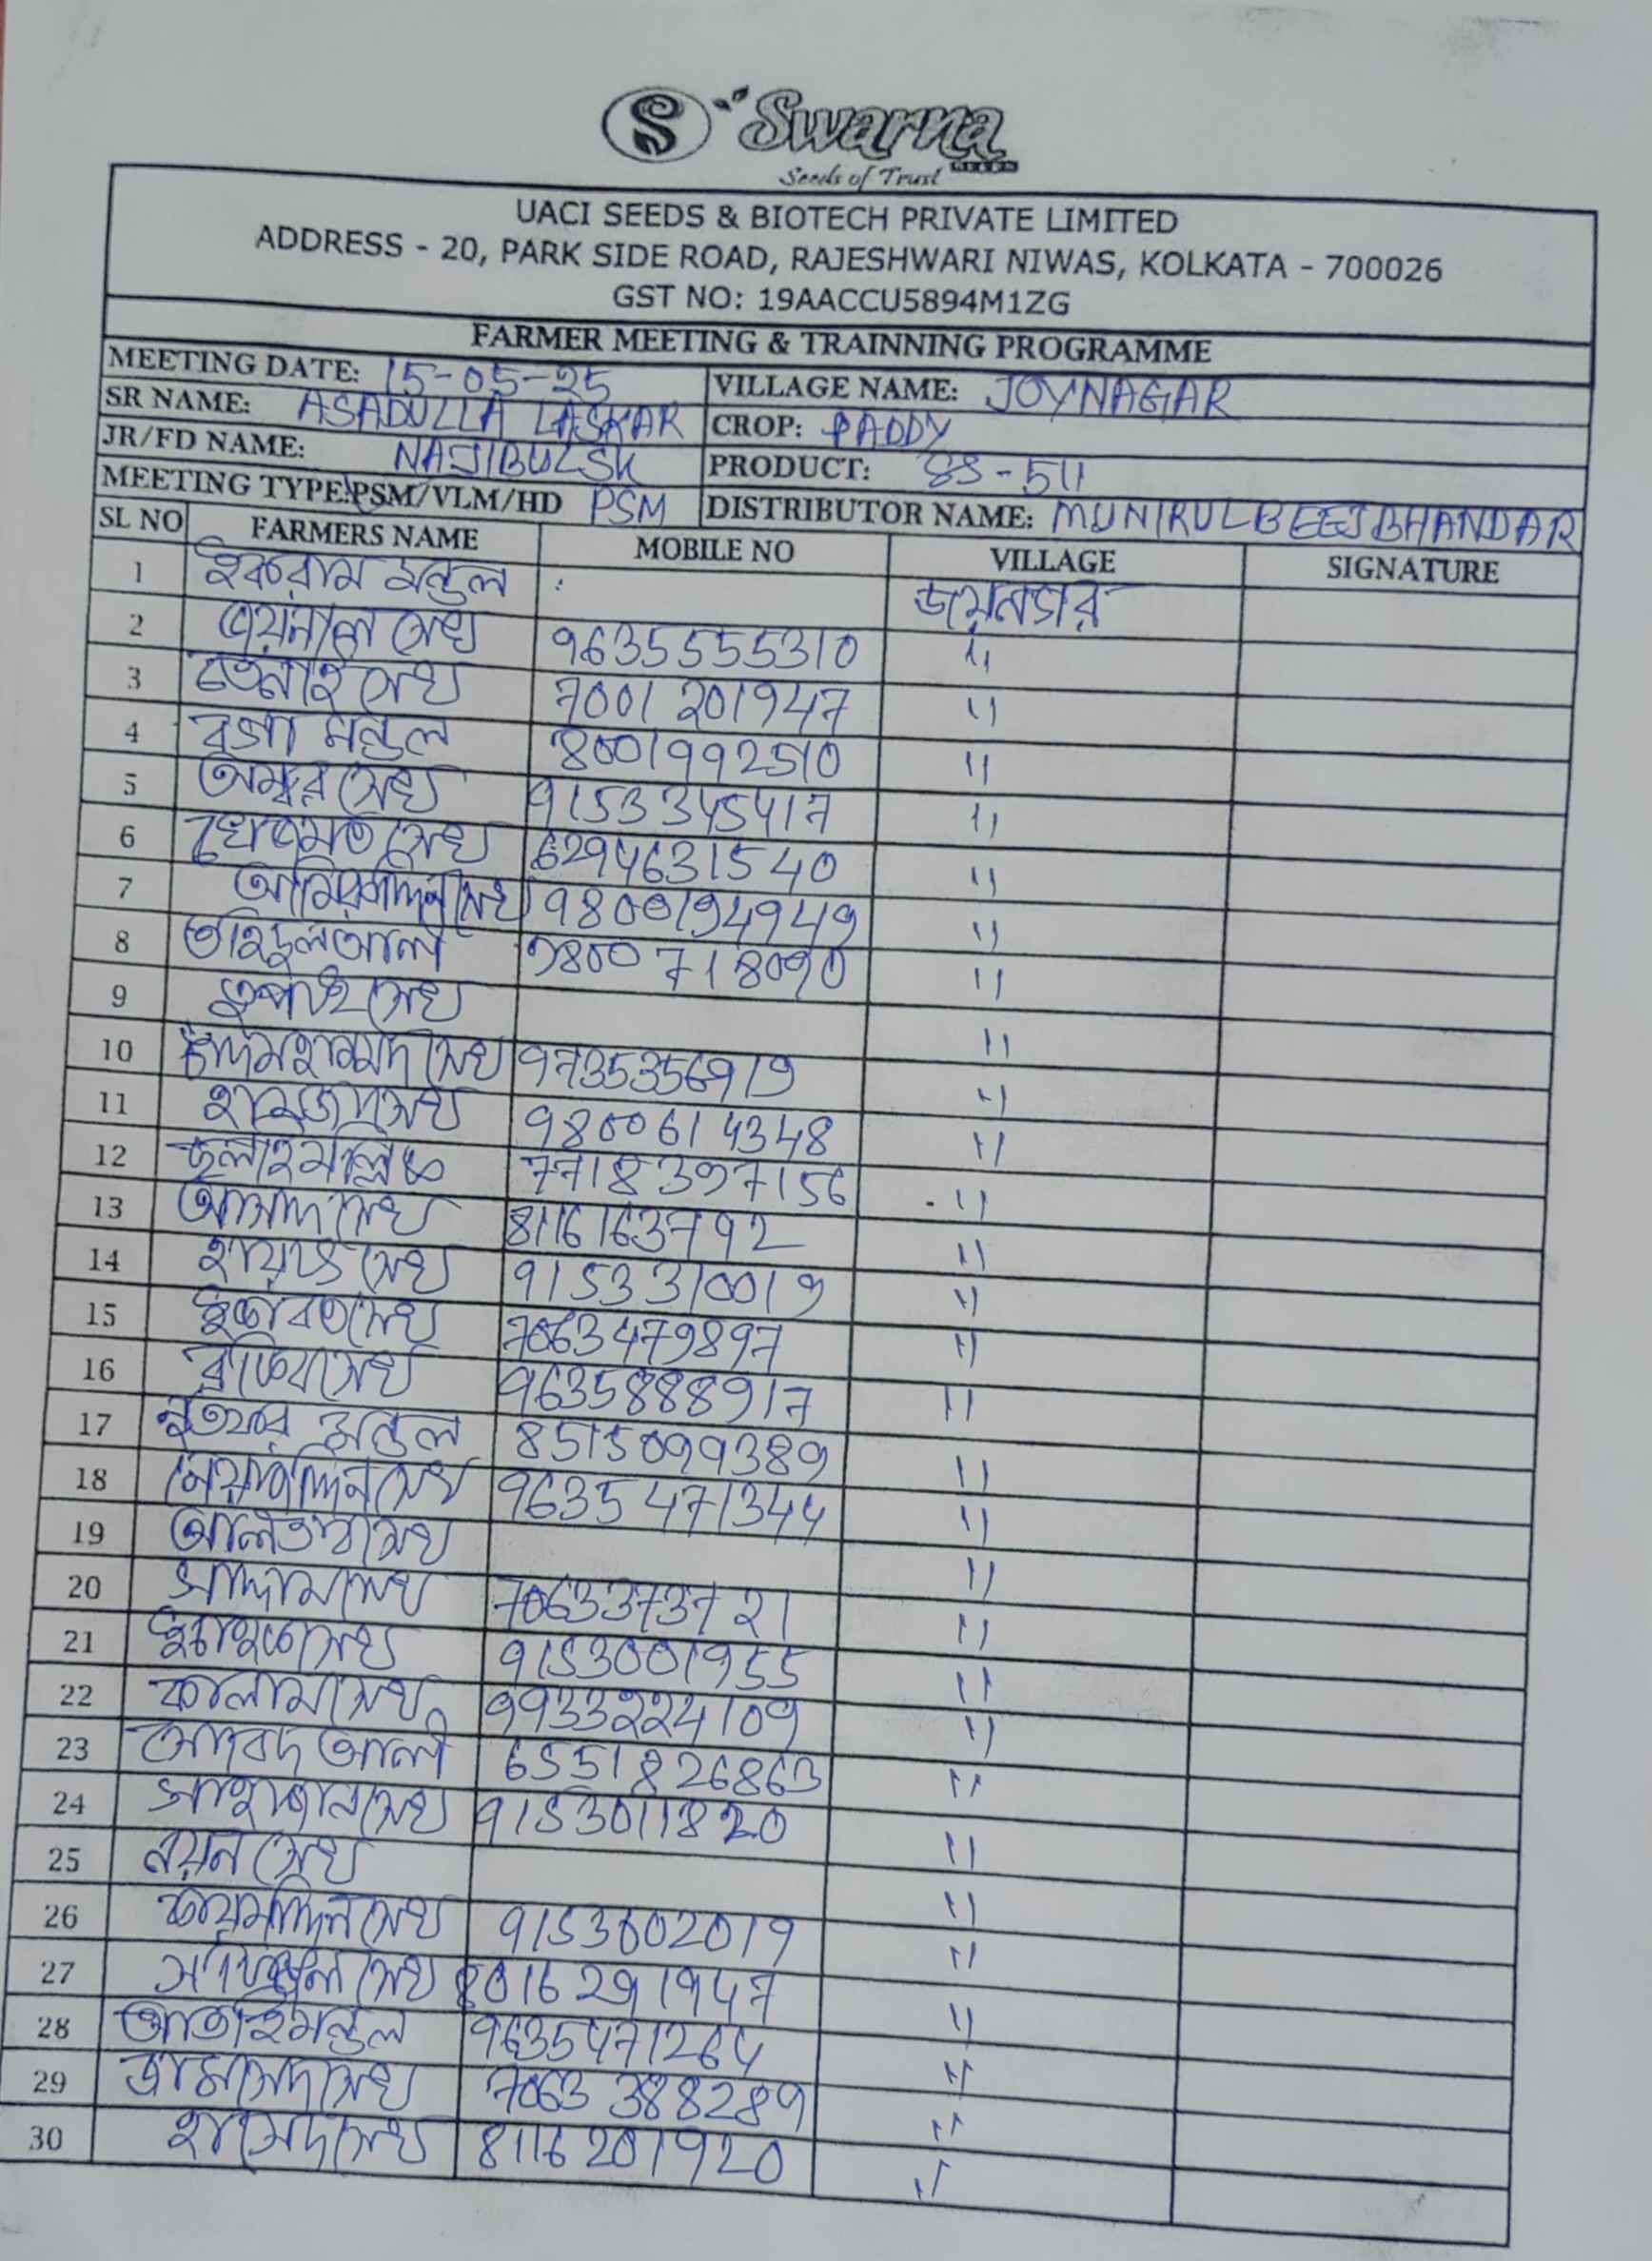 S Swarna
SEEDS
Seeds of Trust
UACI SEEDS & BIOTECH PRIVATE LIMITED
ADDRESS - 20, PARK SIDE ROAD, RAJESHWARI NIWAS, KOLKATA - 700026
GST NO: 19AACCU5894M1ZG
FARMER MEETING & TRAINNING PROGRAMME
MEETING DATE: 15-05-25 VILLAGE NAME: JOYNAGAR
SR NAME: ASADULLA LASKAR CROP: PADDY
JR/FD NAME: NAJIBUL SK PRODUCT: SS-511
MEETING TYPE:PSM/VLM/HD PSM DISTRIBUTOR NAME: MUNIRUL BEEJ BHANDAR
SL NO FARMERS NAME MOBILE NO VILLAGE SIGNATURE
1 ইকরাম মন্ডল জয়নগর
2 জয়নাল সেখ 9635555310 "
3 সেখ 7001201947 "
4 মন্ডল 8001992510 "
5 সেখ 9153345417 "
6 সেখ 6294631540 "
7 সেখ 9800194949 "
8 তাহিদুল আলী 9800718090 "
9 সেখ "
10 সেখ 9735356919 "
11 সেখ 9800614348 "
12 দুলাই মল্লিক 7718397156 "
13 আসাদ সেখ 8116163792 "
14 সেখ 9153310019 "
15 সেখ 7063479897 "
16 সেখ 9635888917 "
17 মন্ডল 8515099389 "
18 সেখ 9635471344 "
19 সেখ "
20 সাদ্দাম সেখ 7063373721 "
21 সেখ 9153001955 "
22 কালাম সেখ 9933224109 "
23 আলী 6551826863 "
24 সাহাজান সেখ 9153011820 "
25 নয়ন সেখ "
26 সেখ 9153002019 "
27 সেখ 8016291947 "
28 মন্ডল 9635471264 "
29 সেখ 7063388289 "
30 সেখ 8116201920 "